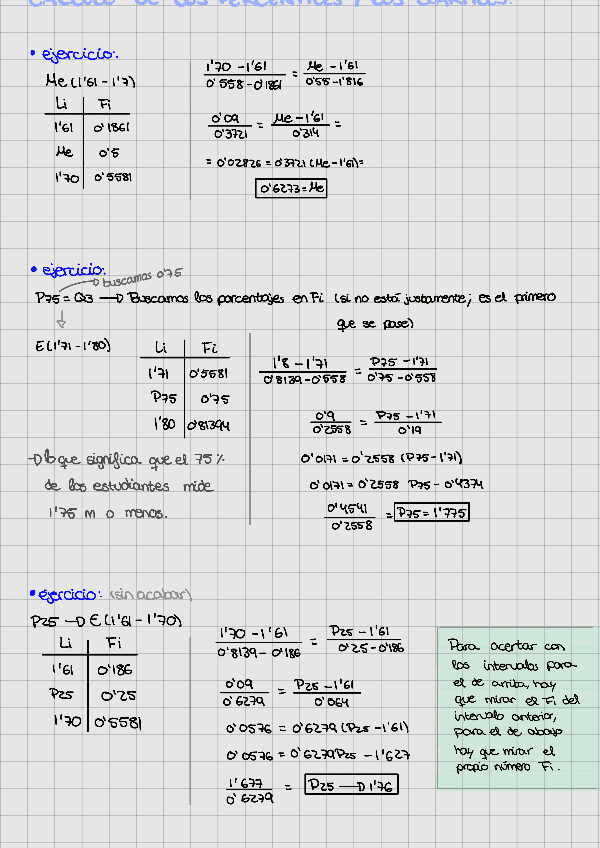 CÁLCULO DE LOS PERCENTILES Y LOS CUARTILES:
• ejercicio:
Me (1'61 - 1'7)
Li Fi
1'61 0'1861
Me 0'5
1'70 0'5581
1'70 - 1'61 / 0'558 - 0'1861 = Me - 1'61 / 0'55 - 1'816
0'09 / 0'3721 = Me - 1'61 / 0'314 =
= 0'02826 = 0'3721 (Me - 1'61) =
0'6273 = Me
• ejercicio:
buscamos 0'75
P75 = Q3 → Buscamos los porcentajes en Fi (si no está justamente; es el primero
que se pase)
E (1'71 - 1'80)
Li Fi
1'71 0'5581
P75 0'75
1'80 0'81394
→ lo que significa que el 75%
de los estudiantes mide
1'75 m o menos.
1'8 - 1'71 / 0'8139 - 0'558 = P75 - 1'71 / 0'75 - 0'558
0'9 / 0'2558 = P75 - 1'71 / 0'19
0'0171 = 0'2558 (P75 - 1'71)
0'0171 = 0'2558 P75 - 0'4374
0'4541 / 0'2558 = P75 = 1'775
• ejercicio: (sin acabar)
P25 → E (1'61 - 1'70)
Li Fi
1'61 0'186
P25 0'25
1'70 0'5581
1'70 - 1'61 / 0'8139 - 0'186 = P25 - 1'61 / 0'25 - 0'186
0'09 / 0'6279 = P25 - 1'61 / 0'064
0'0576 = 0'6279 (P25 - 1'61)
0'0576 = 0'6279 P25 - 1'627
1'677 / 0'6279 = P25 → 1'76
Para acertar con
los intervalos para
el de arriba, hay
que mirar el Fi del
intervalo anterior,
para el de abajo
hay que mirar el
propio número Fi.